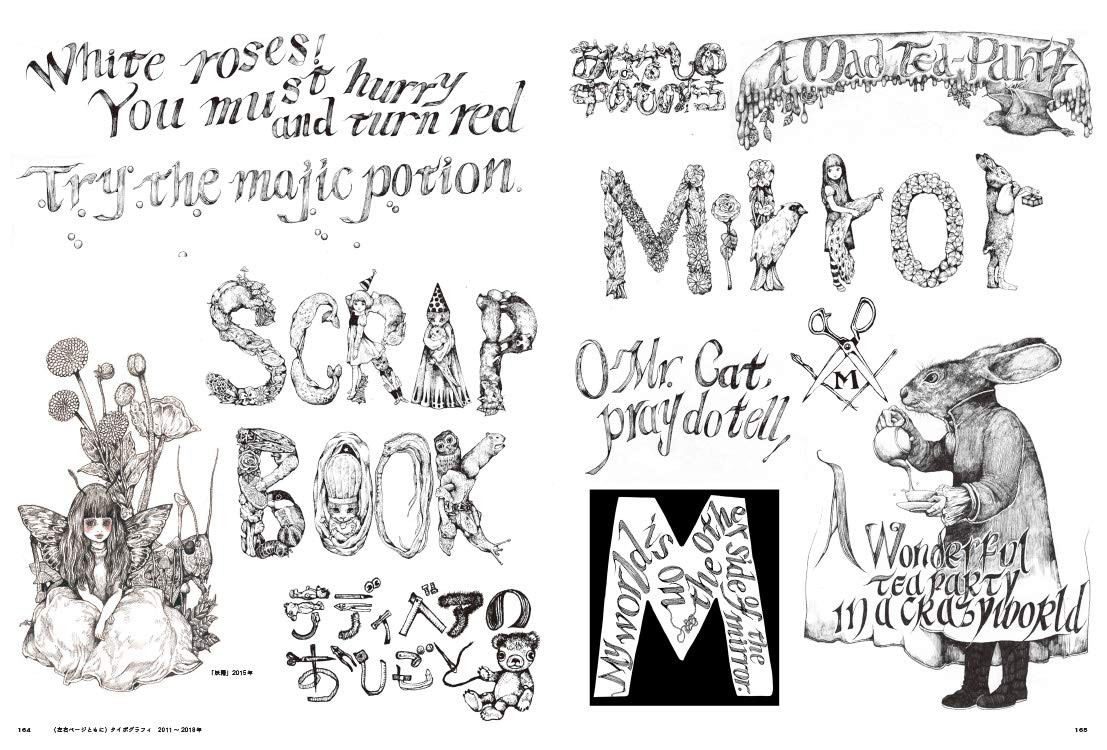 White roses!
You must hurry
and turn red
Try the majic potion.
SCRAP
BOOK
テディベアの
2015年
164 （左右ページともに）タイポグラフィ 2011〜2018年
A Mad Tea-Party
Mirror
O Mr. Cat,
pray do tell,
M
My world is on the other side of the mirror.
A Wonderful
tea party
in a crazy world
165